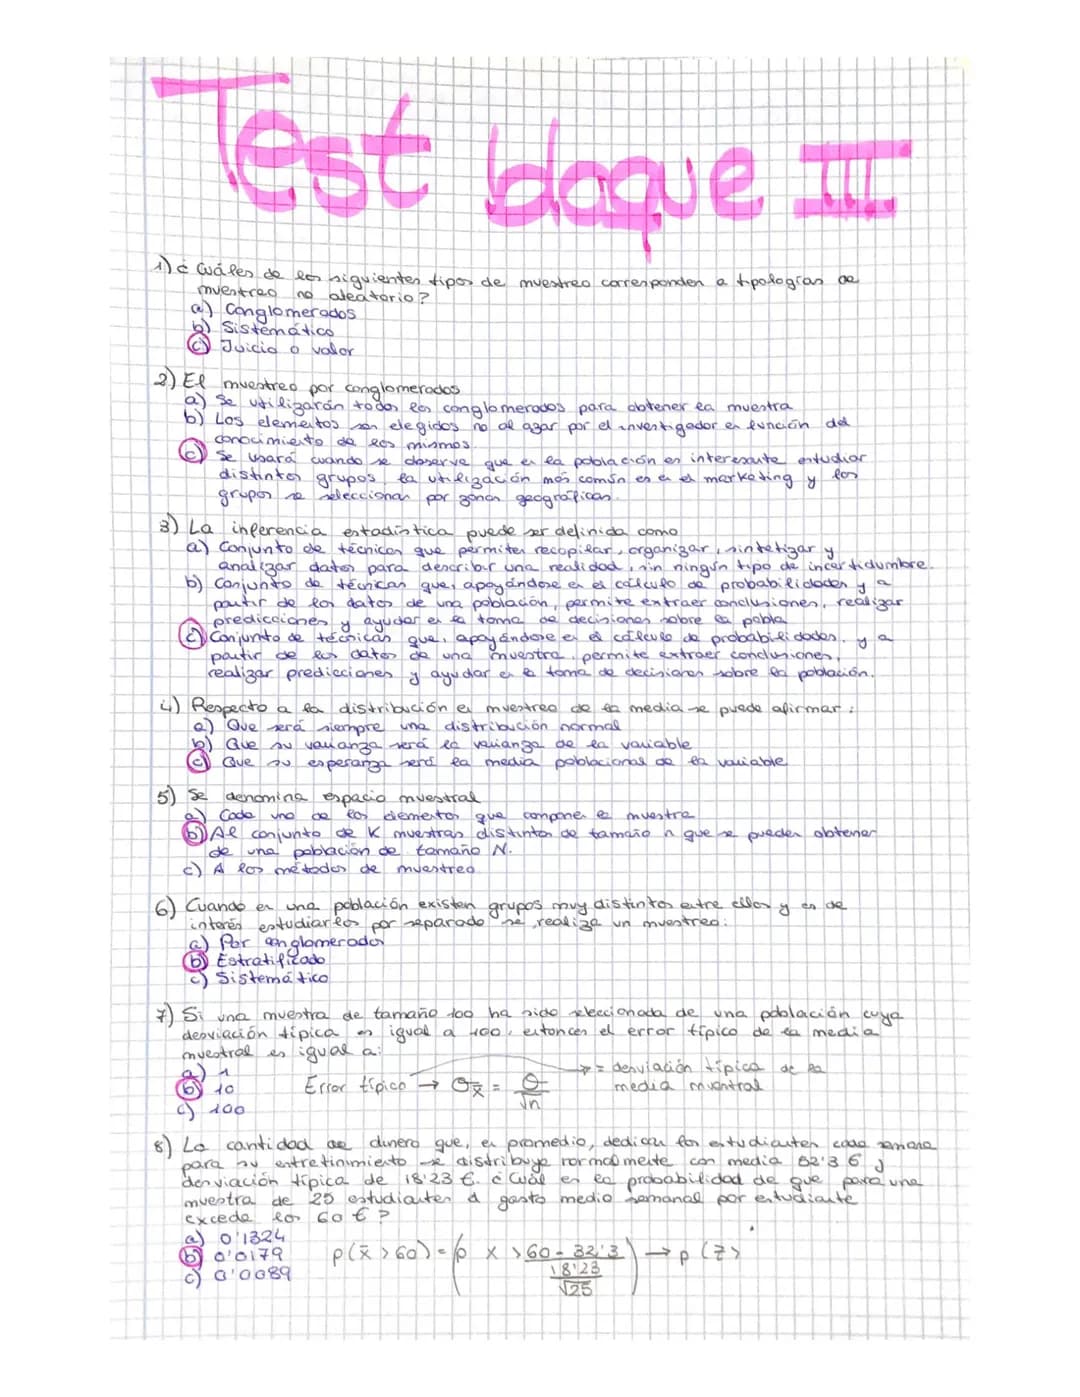 Test bloque III.
1) ¿ Cuáles de los siguientes tipos de muestreo corresponden a tipologías de
muestreo no aleatorio?
a) Conglomerados
b) Sistemático
c) Juicio o valor
2) El muestreo por conglomerados
a) Se utilizarán todos los conglomerados para obtener la muestra
b) Los elementos son elegidos no al azar por el investigador en función del
conocimiento de los mismos.
c) Se usará cuando se observe que en la población es interesante estudiar
distintos grupos, la utilización más común es en el marketing y los
grupos se seleccionan por zonas geográficas.
3) La inferencia estadística puede ser definida como
a) Conjunto de técnicas que permiten recopilar, organizar, sintetizar y
analizar datos para describir una realidad, sin ningún tipo de incertidumbre.
b) Conjunto de técnicas que, apoyándose en el cálculo de probabilidades y a
partir de los datos de una población, permite extraer conclusiones, realizar
predicciones y ayudar en la toma de decisiones sobre la pobla
c) Conjunto de técnicas que, apoyándose en el cálculo de probabilidades, y a
partir de los datos de una muestra, permite extraer conclusiones,
realizar predicciones y ayudar en la toma de decisiones sobre la población.
4) Respecto a la distribución en muestreo de la media se puede afirmar:
a) Que será siempre una distribución normal
b) Que su varianza será la varianza de la variable
c) Que su esperanza será la media poblacional de la variable
5) Se denomina espacio muestral
a) Cada uno de los elementos que componen la muestra
b) Al conjunto de K muestras distintas de tamaño n que se pueden obtener
de una población de tamaño N.
c) A los métodos de muestreo
6) Cuando en una población existen grupos muy distintos entre ellos y es de
interés estudiarlos por separado se realiza un muestreo:
a) Por conglomerados
b) Estratificado
c) Sistemático
7) Si una muestra de tamaño 100 ha sido seleccionada de una población cuya
desviación típica es igual a 100, entonces el error típico de la media
muestral es igual a:
a) 1
b) 10
c) 100
Error típico → σx̄ = σ/√n
→ = desviación típica de la
media muestral
8) La cantidad de dinero que, en promedio, dedican los estudiantes cada semana
para su entretenimiento se distribuye normalmente con media 52'3 € y
desviación típica de 18'23 €. ¿Cuál es la probabilidad de que para una
muestra de 25 estudiantes el gasto medio semanal por estudiante
exceda los 60 €?
a) 0'1324
b) 0'0179
c) 0'0089
p(x̄ > 60) = (p x > 60 - 32'3 / 18'23 / √25) → p (z>